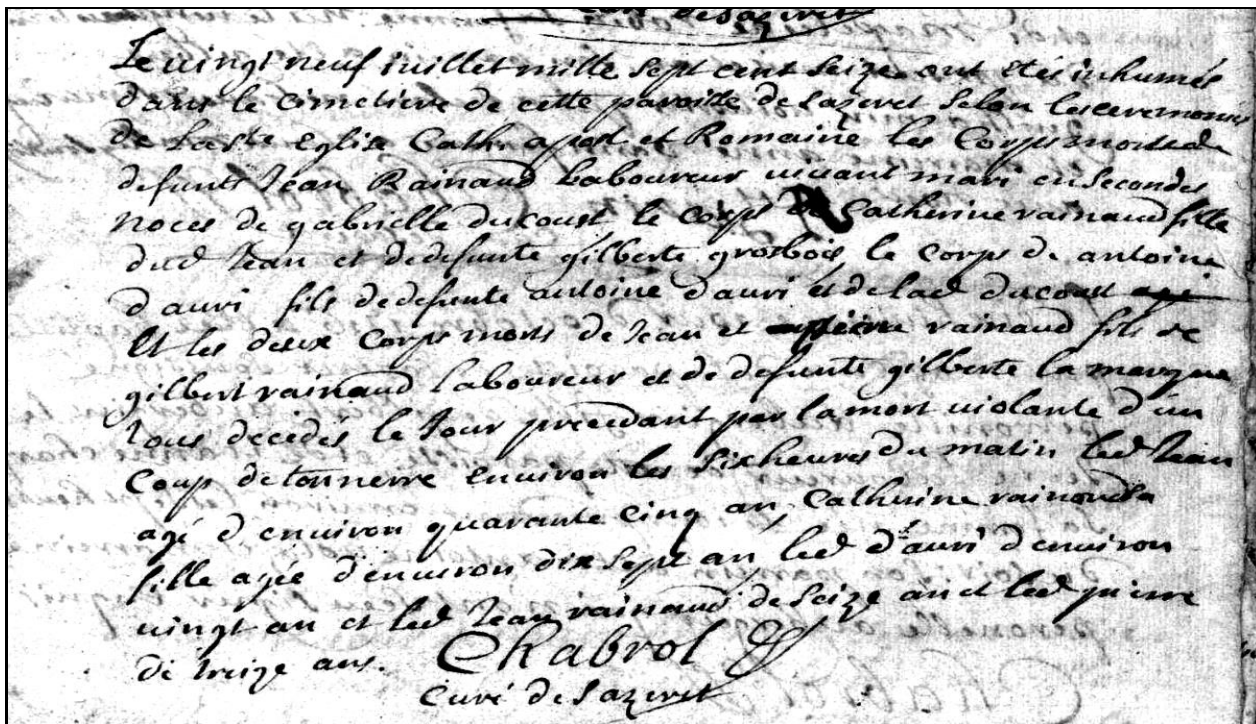 curé de Sazeret
Le vingt neuf iuillet mille sept cent seize ont etés inhumés
dans le cimetiere de cette paroisse de Sazeret selon les ceremonies
de la ste Eglise Cath. apost et Romaine les Corps morts de
defunts Jean Rainaud Laboureur vivant mari en secondes
noces de gabrielle ducoust le corps de Catherine rainaud fille
dud Jean et de defunte gilberte grosbois le corps de antoine
d'auri fils de defunte antoine d'auri et de lad ducoust
Et les deux Corps morts de Jean et pierre rainaud fils de
gilbert rainaud laboureur et de defunte gilberte la marque
tous decedés le Jour precedant par la mort violante d'un
Coup de tonnerre environ les six heures du matin led Jean
agé d'environ quarante cinq an, Catherine rainaud sa
fille agée d'environ dix sept an, led d'auri d'environ
vingt an et led Jean rainaud de seize an et led pierre
de treize ans. Chabrol
Curé de Sazeret